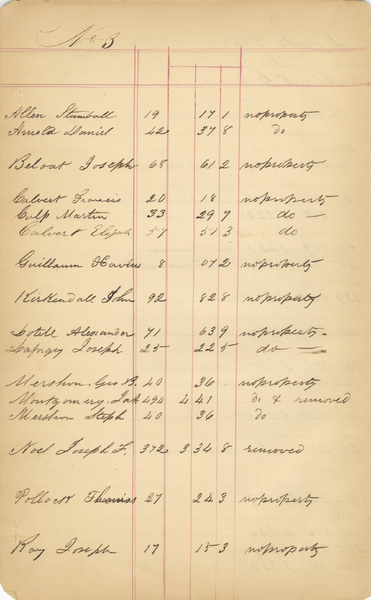 No 3
Allen Stumball 19 17 1 noproperty
Arnold Daniel 42 37 8 do
Beloat Joseph 68 61 2 noproperty
Calvert Francis 20 18 noproperty
Culp Martin 33 29 7 do —
Calvert Elijah 57 51 3 do
Guillaum 8 07 2 noproperty
Kirkendall John 92 82 8 noproperty
Alexander 71 63 9 noproperty -
Joseph 25 22 5 do —
Mershon Geo B. 40 36 noproperty
Montgomery Jak 490 4 41 do & removed
Mershon Steph 40 36 do
Noel Joseph F. 372 3 34 8 removed
Pollock Thomas 27 24 3 noproperty
Ray Joseph 17 15 3 noproperty